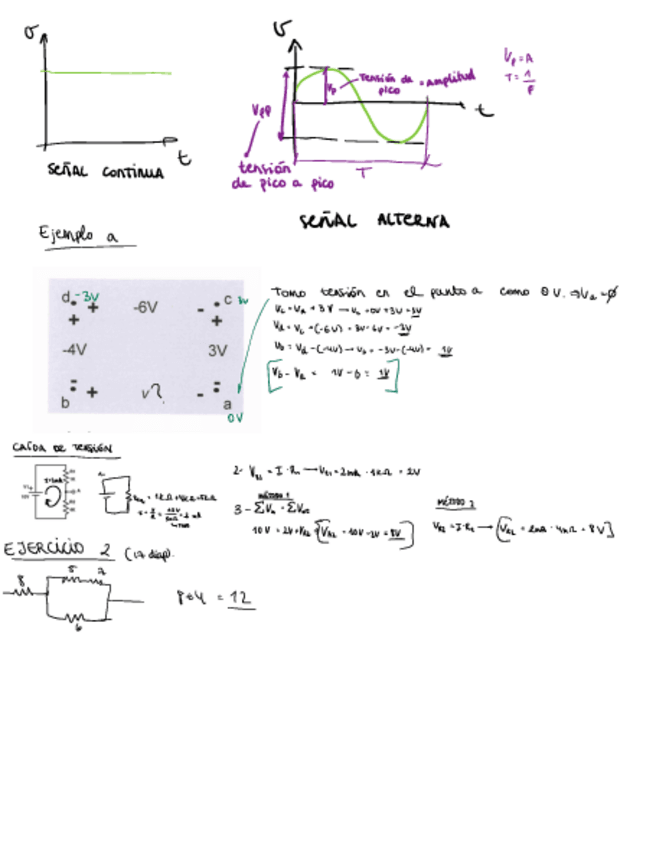 v
t
SEÑAL CONTINUA
v
Vpp
Vp
tensión de pico = amplitud
t
T
tensión
de pico a pico
Vp = A
T = 1/F
SEÑAL ALTERNA
Ejemplo a
d -3V
-6V
c 3V
-4V
3V
b
v?
a
0V
Tomo tensión en el punto a como 0V. ⇒ Va = ∅
Vb - Va = 1V - 0 = 1V
CAÍDA DE TENSIÓN
2- VR1 = I · R1 → VR1 = 2mA · 1kΩ = 2V
MÉTODO 1
3-
10V = 2V + VR2 [VR2 = 10V - 2V = 8V]
MÉTODO 2
VR2 = I · R2 → [VR2 = 2mA · 4kΩ = 8V]
EJERCICIO 2 (17 diap).
8
5
7
6
8+4 = 12